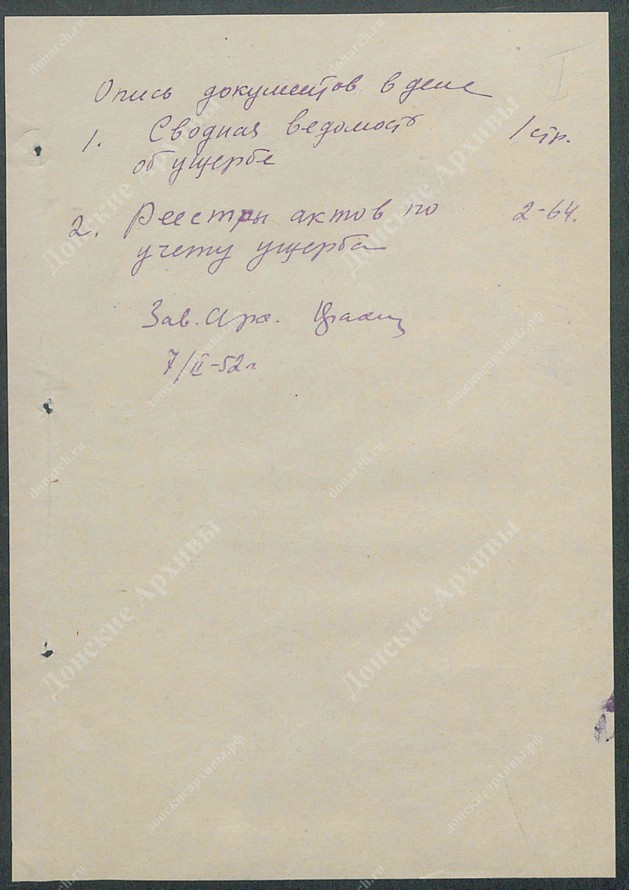 I
Опись документов в деле
1. Сводная ведомость 1 стр.
об ущербе
2. Реестры актов по 2-64.
учету ущерба
Зав. Арх.
7/II-52 г
Донские Архивы
donarch.ru
донскиеархивы.рф